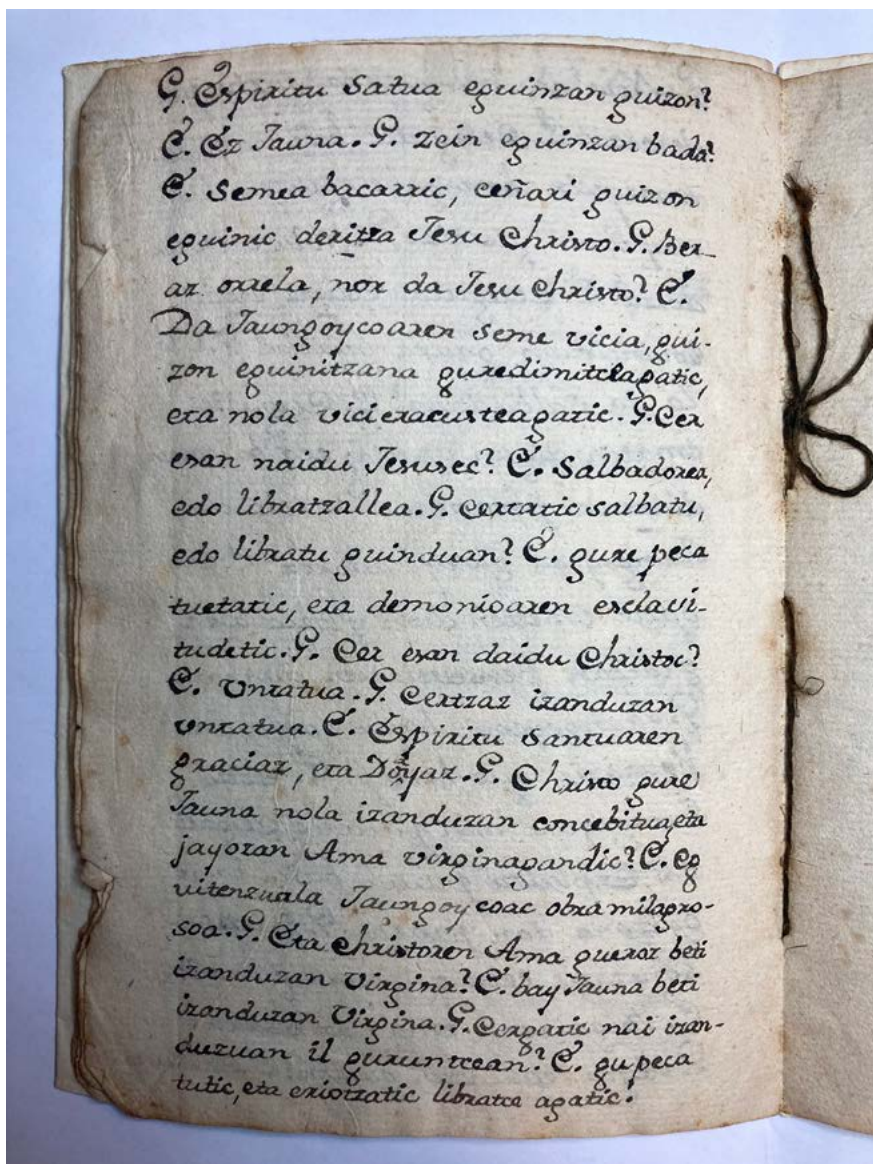 G. Espiritu Satua eguinzan guizon?
E. Ez Jauna. G. zein eguinzan bada?
E. Semea bacarric, ceñari guizon
eguinic deritza Jesu Christo. G. Ber-
az orrela, nor da Jesu Christo? E.
Da Jaungoycoaren seme vicia, gui-
zon eguinitzana guredimitceagatic,
eta nola vicieracusteagatic. G. Cer
esan naidu Jesusec? E. Salbadorea,
edo libratzallea. G. Certatic salbatu,
edo libratu guinduan? E. gure peca
tuetatic, eta demonioaren esclavi-
tudetic. G. Cer esan daidu Christoc?
E. Untatua. G. Certzaz izanduzan
untatua. E. Espiritu Santuaren
graciaz, eta Doyaz. G. Christo gure
Jauna nola izanduzan concebitua, eta
jayozan Ama virginagandic? E. eg
uitenzuala Jaungoycoac obra milagro-
soa. G. Eta Christoren Ama gueroz beti
izanduzan virgina? E. bay Jauna beti
izanduzan Virgina. G. Cergatic nai izan-
duzuan il guruntcean? E. gu peca
tutic, eta eriotzatic libratce agatic.